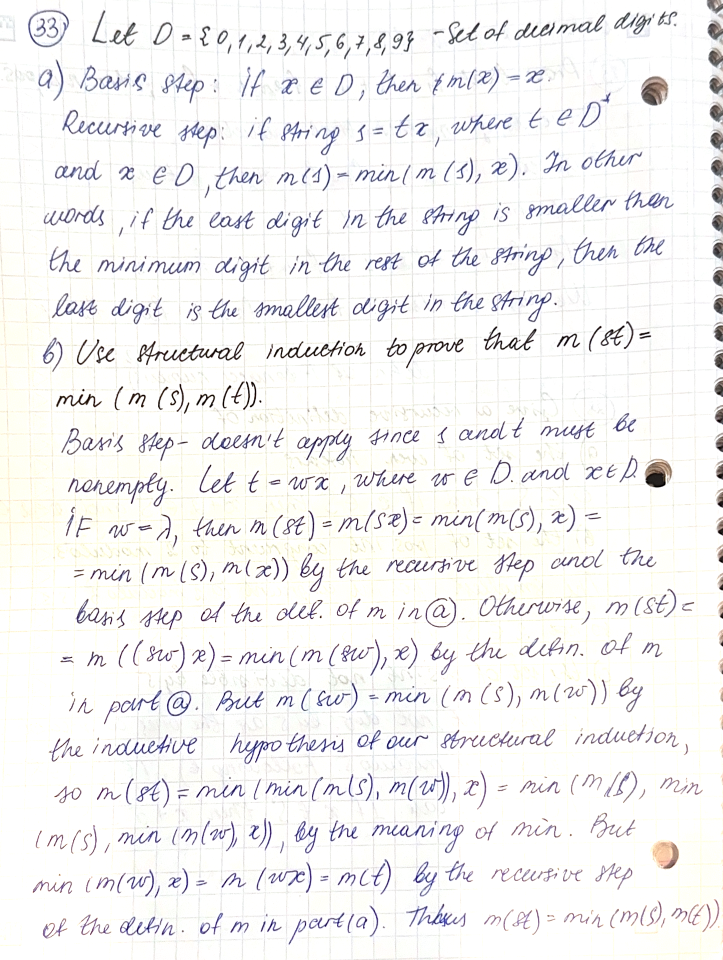 33) Let D = {0,1,2,3,4,5,6,7,8,9} - Set of decimal digits.
a) Basis step: if x ∈ D, then m(x) = x.
Recursive step: if string s = tx, where t ∈ D⁺
and x ∈ D, then m(s) = min(m(s), x). In other
words, if the last digit in the string is smaller than
the minimum digit in the rest of the string, then the
last digit is the smallest digit in the string.
b) Use structural induction to prove that m(st) =
min (m(s), m(t)).
Basis step - doesn't apply since s and t must be
nonempty. Let t = wx, where w ∈ D. and x ∈ D.
IF w = λ, then m(st) = m(sx) = min(m(s), x) =
= min (m(s), m(x)) by the recursive step and the
basis step of the def. of m in (a). Otherwise, m(st) =
= m((sw)x) = min(m(sw), x) by the defin. of m
in part (a). But m(sw) = min (m(s), m(w)) by
the inductive hypothesis of our structural induction,
so m(st) = min (min(m(s), m(w)), x) = min (m(s), min
(m(s), min (m(w), x)), by the meaning of min. But
min (m(w), x) = m(wx) = m(t) by the recursive step
of the defin. of m in part (a). Thus m(st) = min (m(s), m(t))